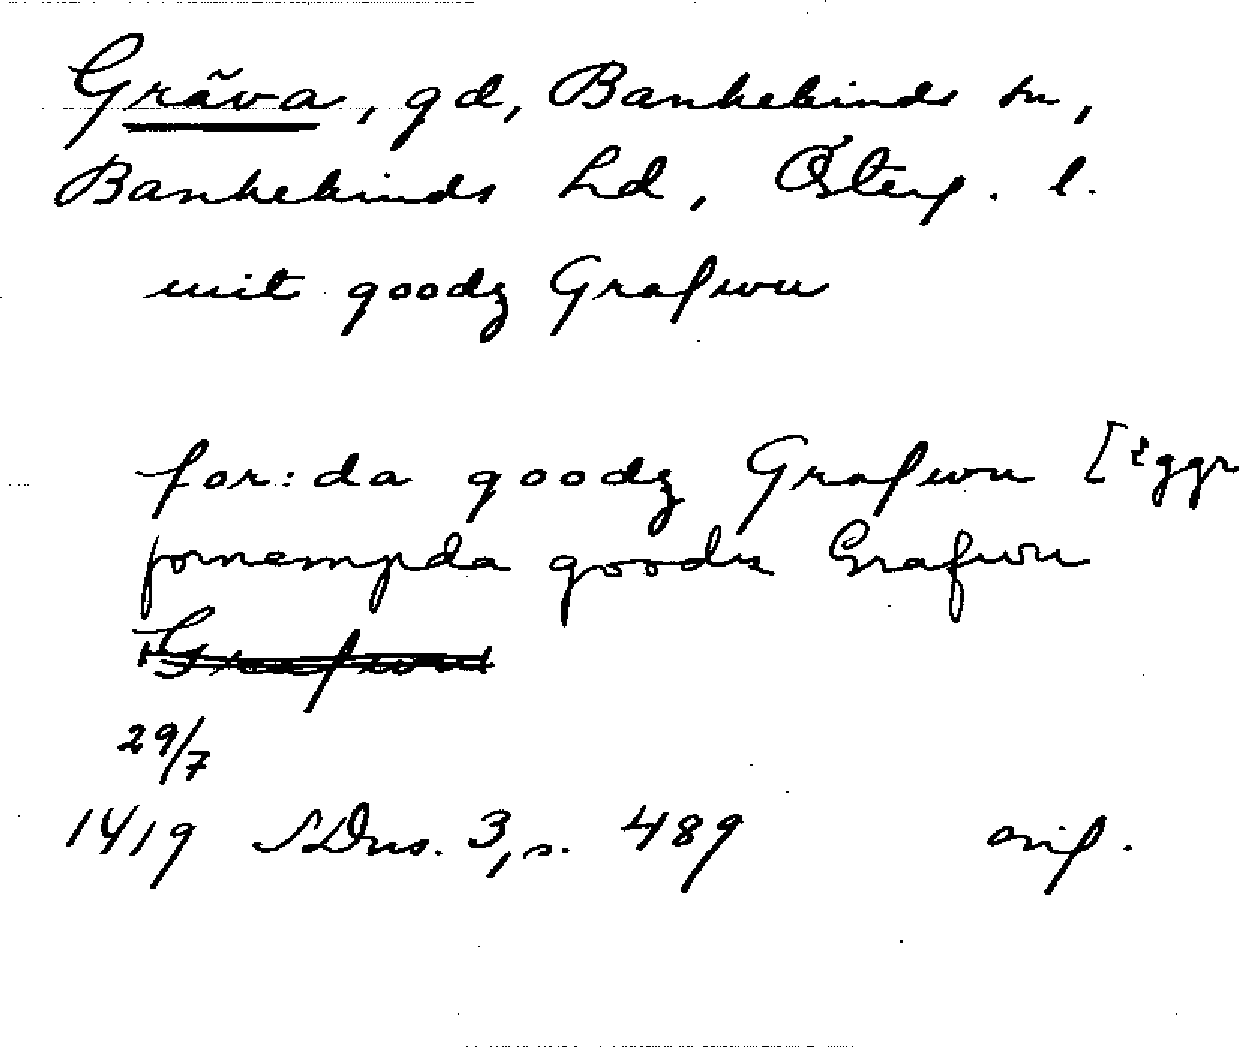 Gråva, gd, Bankekinds sn,
Bankekinds hd, Österg. l.
mit goodz Grafwu
for:da goodz Grafwu [2ggr
fornempda goodz Grafwu
Grafwu
29/7
1419 SDns. 3, s. 489 orig.